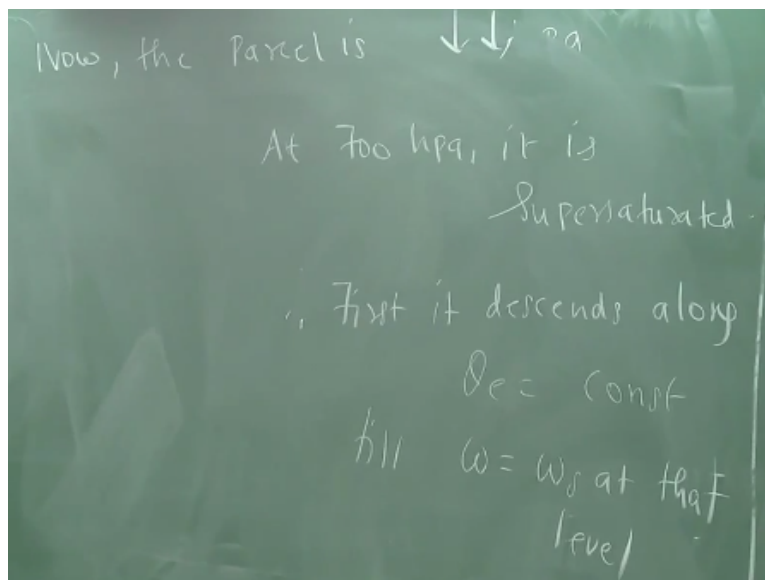 Now, the parcel is ↓↓, pa
At 700 hpa, it is
Supersaturated.
∴ First it descends along
θe = const
till ω = ωs at that
level